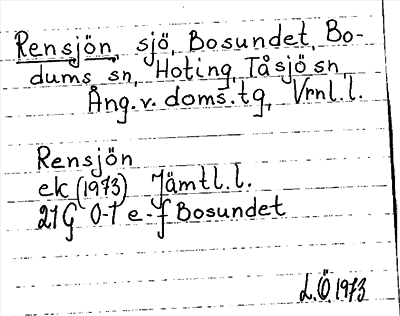 Rensjön, sjö, Bosundet, Bo-
dums sn, Hoting, Tåsjö sn,
Ång. v. doms. tg, Vrnl. l.
Rensjön
ek (1973) Jämtl. l.
21G 0-1 e-f Bosundet
L.Ö. 1973